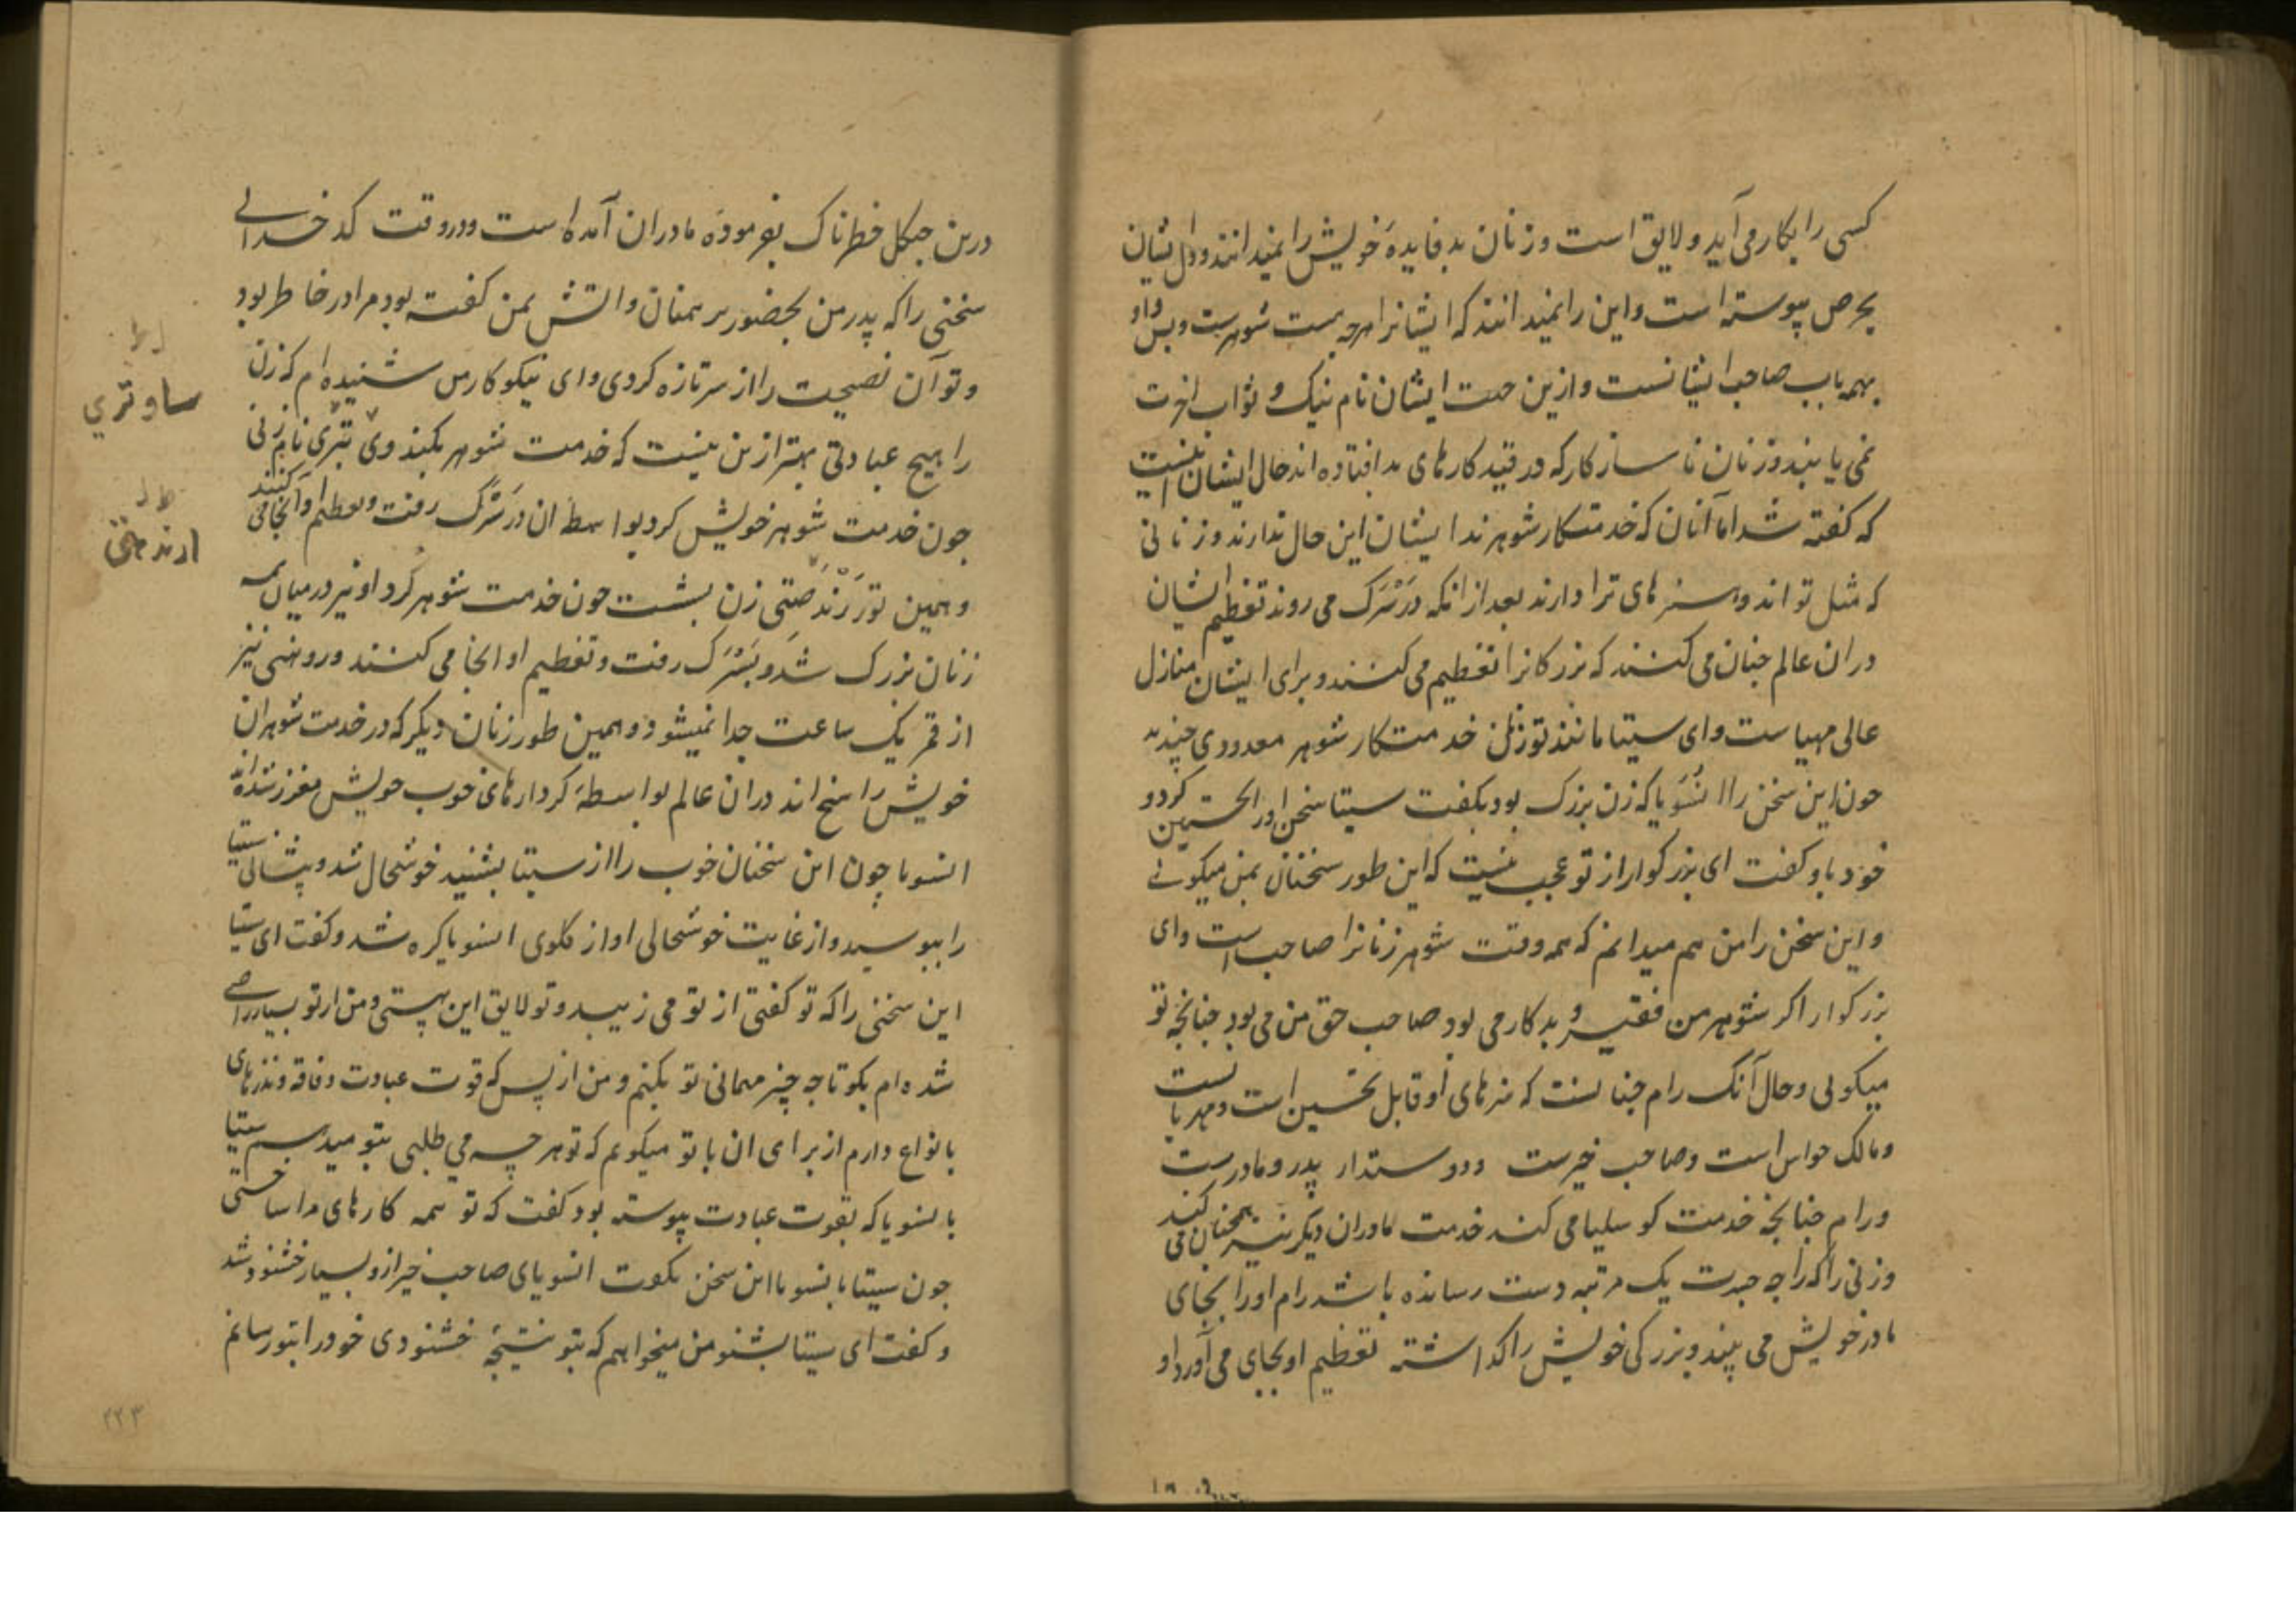 کسی را بکار می آید و لایق است و زنان بد فایدهٔ خویش را نمیدانند و دل ایشان
بحرص پیوسته است و این را نمیدانند که ایشانرا هرچه هست شوهرست و بس و او
بهمه باب صاحب ایشانست و ازین جهت ایشان نام نیک و ثواب اخرت
نمی یابند و زنان ناسازکار که در قید کارهای بد افتاده اند حال ایشان اینست
که کفته شد اما آنان که خدمتکار شوهرند ایشان این حال ندارند و زنانی
که مثل تو اند و هنرهای ترا دارند بعد از انکه در سَرَک می روند تعظیم ایشان
دران عالم جنان می کنند که بزرکانرا تعظیم می کنند و برای ایشان منازل
عالی مهیاست و ای سیتا مانند تو زنان خدمتکار شوهر معدودی چندند
جون این سخن را انسویا که زن بزرک بود بکفت سیتا سخن اورا تحسین کرد و
خود باو کفت ای بزرکوار از تو عجب نیست که این طور سخنان بمن میکوئی
و این سخن را من هم میدانم که همه وقت شوهر زنانرا صاحب است و ای
بزرکوار اکر شوهر من فقیر و بدکار می بود صاحب حق من می بود جنانجه تو
میکوئی و حال آنکه رام جنانست که هنرهای او قابل تحسین است و مهربانست
و مالک حواس است و صاحب خیرست و دوستدار پدر و مادرست
و رام جنانجه خدمت کوسلیا می کند خدمت مادران دیکر نیز همجنان می کند
و زنی را که راجه جسرت یک مرتبه دست رسانده باشد رام اورا بجای
مادر خویش می بیند و بزرکی خویش را کذاشته تعظیم او بجای می آورد و
درین جنکل خطرناک بفرمودهٔ مادران آمده است و در وقت کدخدائی
سخنی را که پدر من بحضور برهمنان و اتش بمن کفته بود مرا در خاطر بود
و تو آن نصیحت را از سر تازه کردی و ای نیکوکار من شنیده ام که زن
را هیچ عبادتی بهتر ازین نیست که خدمت شوهر بکند و نام زنی
جون خدمت شوهر خویش کرد بواسطهٔ ان در سَرَک رفت و تعظیم او آنجا می کنند
و همین طور زن بشست جون خدمت شوهر کرد او نیز درمیان همه
زنان بزرک شد و بسَرَک رفت و تعظیم او انجا می کنند و روهنی نیز
از قمر یک ساعت جدا نمیشود و همین طور زنان دیکر که در خدمت شوهران
خویش راسخ اند دران عالم بواسطهٔ کردارهای خوب خویش معزز شده اند
انسویا چون این سخنان خوب را از سیتا بشنید خوشحال شد و پیشانی سیتا
را ببوسید و از غایت خوشحالی اواز کلوی انسویا کره شد و کفت ای سیتا
این سخنی را که تو کفتی از تو می زیبد و تو لایق این هستی و من از تو بسیار راضی
شده ام بکو تا چه چیز مهمانی تو بکنم و من از بس که قوت عبادت و فاقه و نذرهای
بانواع دارم از برای ان با تو میکویم که تو هر چه می طلبی بتو میدهم سیتا
بانسویا که بقوت عبادت پیوسته بود کفت که تو همه کارهای مرا ساختی
جون سیتا بانسویا این سخن بکفت انسویای صاحب خیر ازو بسیار خشنود شد
و کفت ای سیتا بشنو من میخواهم که بتو نتیجهٔ خشنودی خود را بتو رسانم
ساوتری
۲۲۳